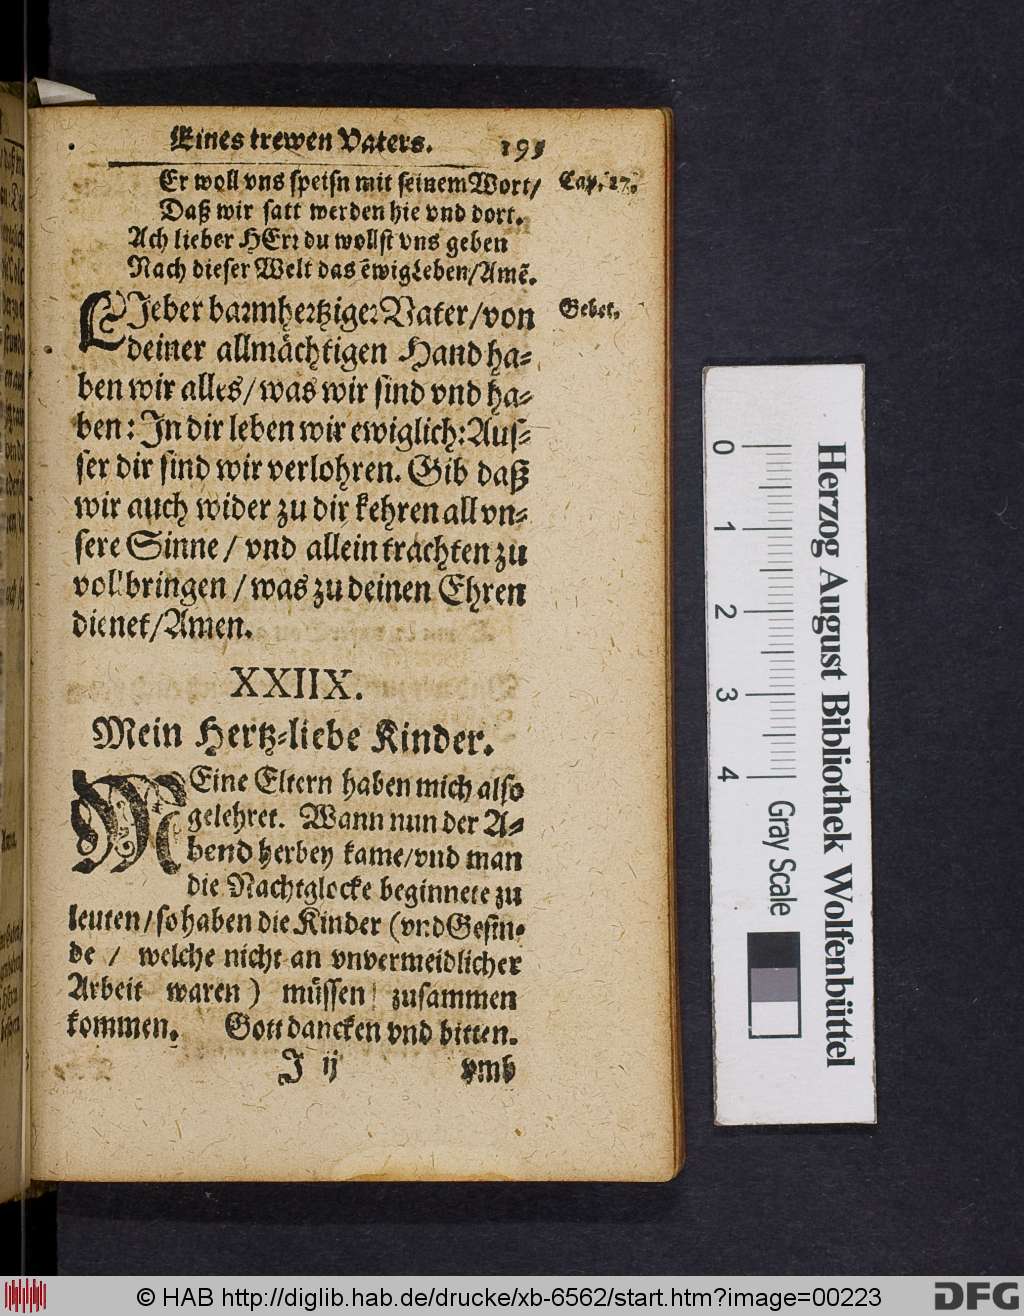 Eines trewen Vaters. 195
Er woll vns speisn mit seinem Wort/ Cap. 27.
Daß wir satt werden hie vnd dort.
Ach lieber HErr du wollst vns geben
Nach dieser Welt das ewig Leben/Amē.
LIeber barmhertziger Vater/von Gebet.
deiner allmächtigen Hand ha-
ben wir alles/was wir sind vnd ha-
ben: In dir leben wir ewiglich: Aus-
ser dir sind wir verlohren. Gib daß
wir auch wider zu dir kehren all vn-
sere Sinne/vnd allein trachten zu
vollbringen/was zu deinen Ehren
dienet/Amen.
XXIIX.
Mein Hertz-liebe Kinder.
MEine Eltern haben mich also
gelehret. Wann nun der A-
bend herbey kame/vnd man
die Nachtglocke beginnete zu
leuten/so haben die Kinder (vnd Gesin-
de/ welche nicht an vnvermeidlicher
Arbeit waren) müssen zusammen
kommen. Gott dancken vnd bitten.
J ij vmb
0 1 2 3 4
Gray Scale
Herzog August Bibliothek Wolfenbüttel
© HAB http://diglib.hab.de/drucke/xb-6562/start.htm?image=00223
DFG